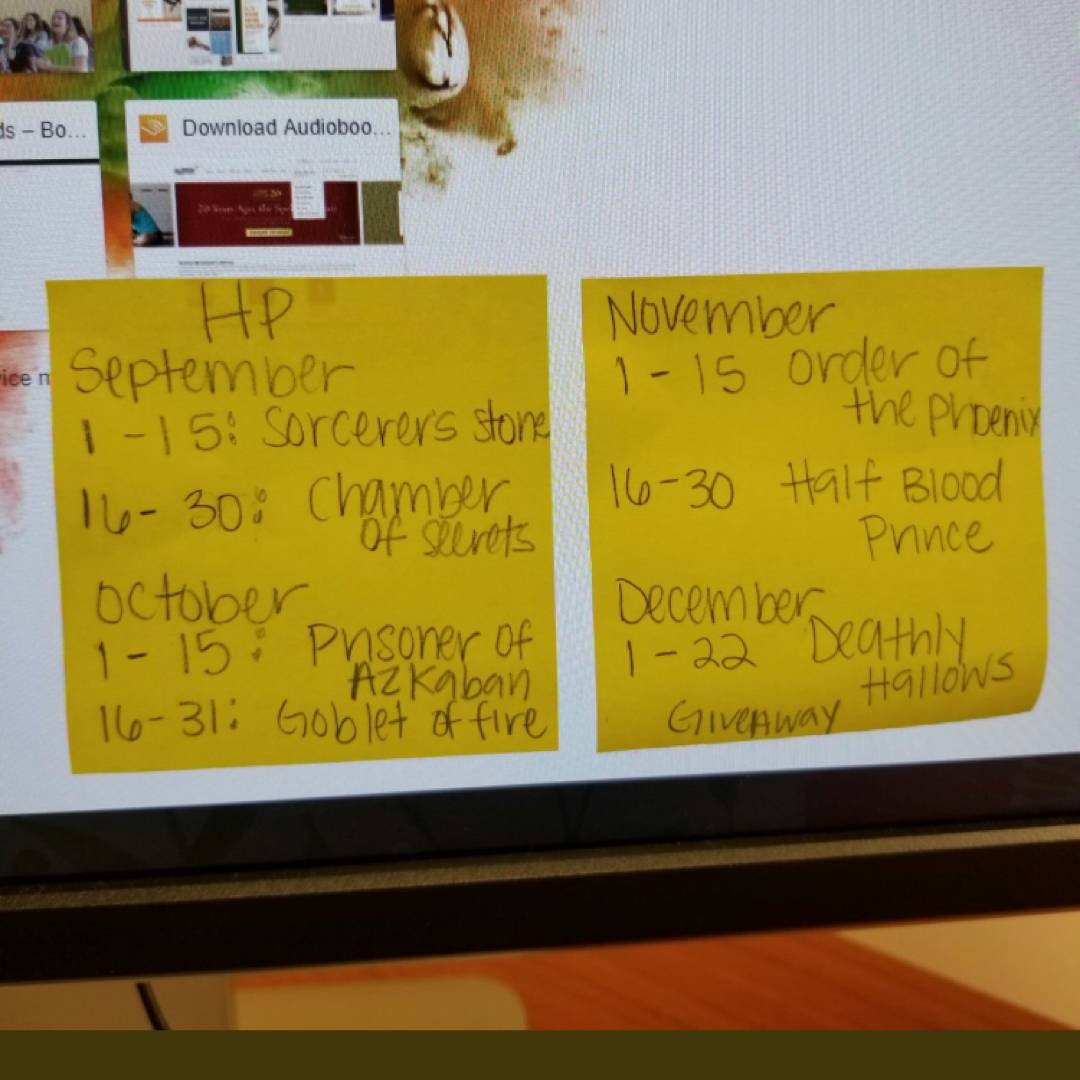 ds – Bo...
Download Audioboo...
ice m
HP
September
1 - 15: Sorcerer's Stone
16 - 30: Chamber
of secrets
October
1 - 15: Prisoner of
Azkaban
16-31: Goblet of fire
November
1 - 15 Order of
the Phoenix
16-30 Half Blood
Prince
December
1 - 22 Deathly
Hallows
Giveaway